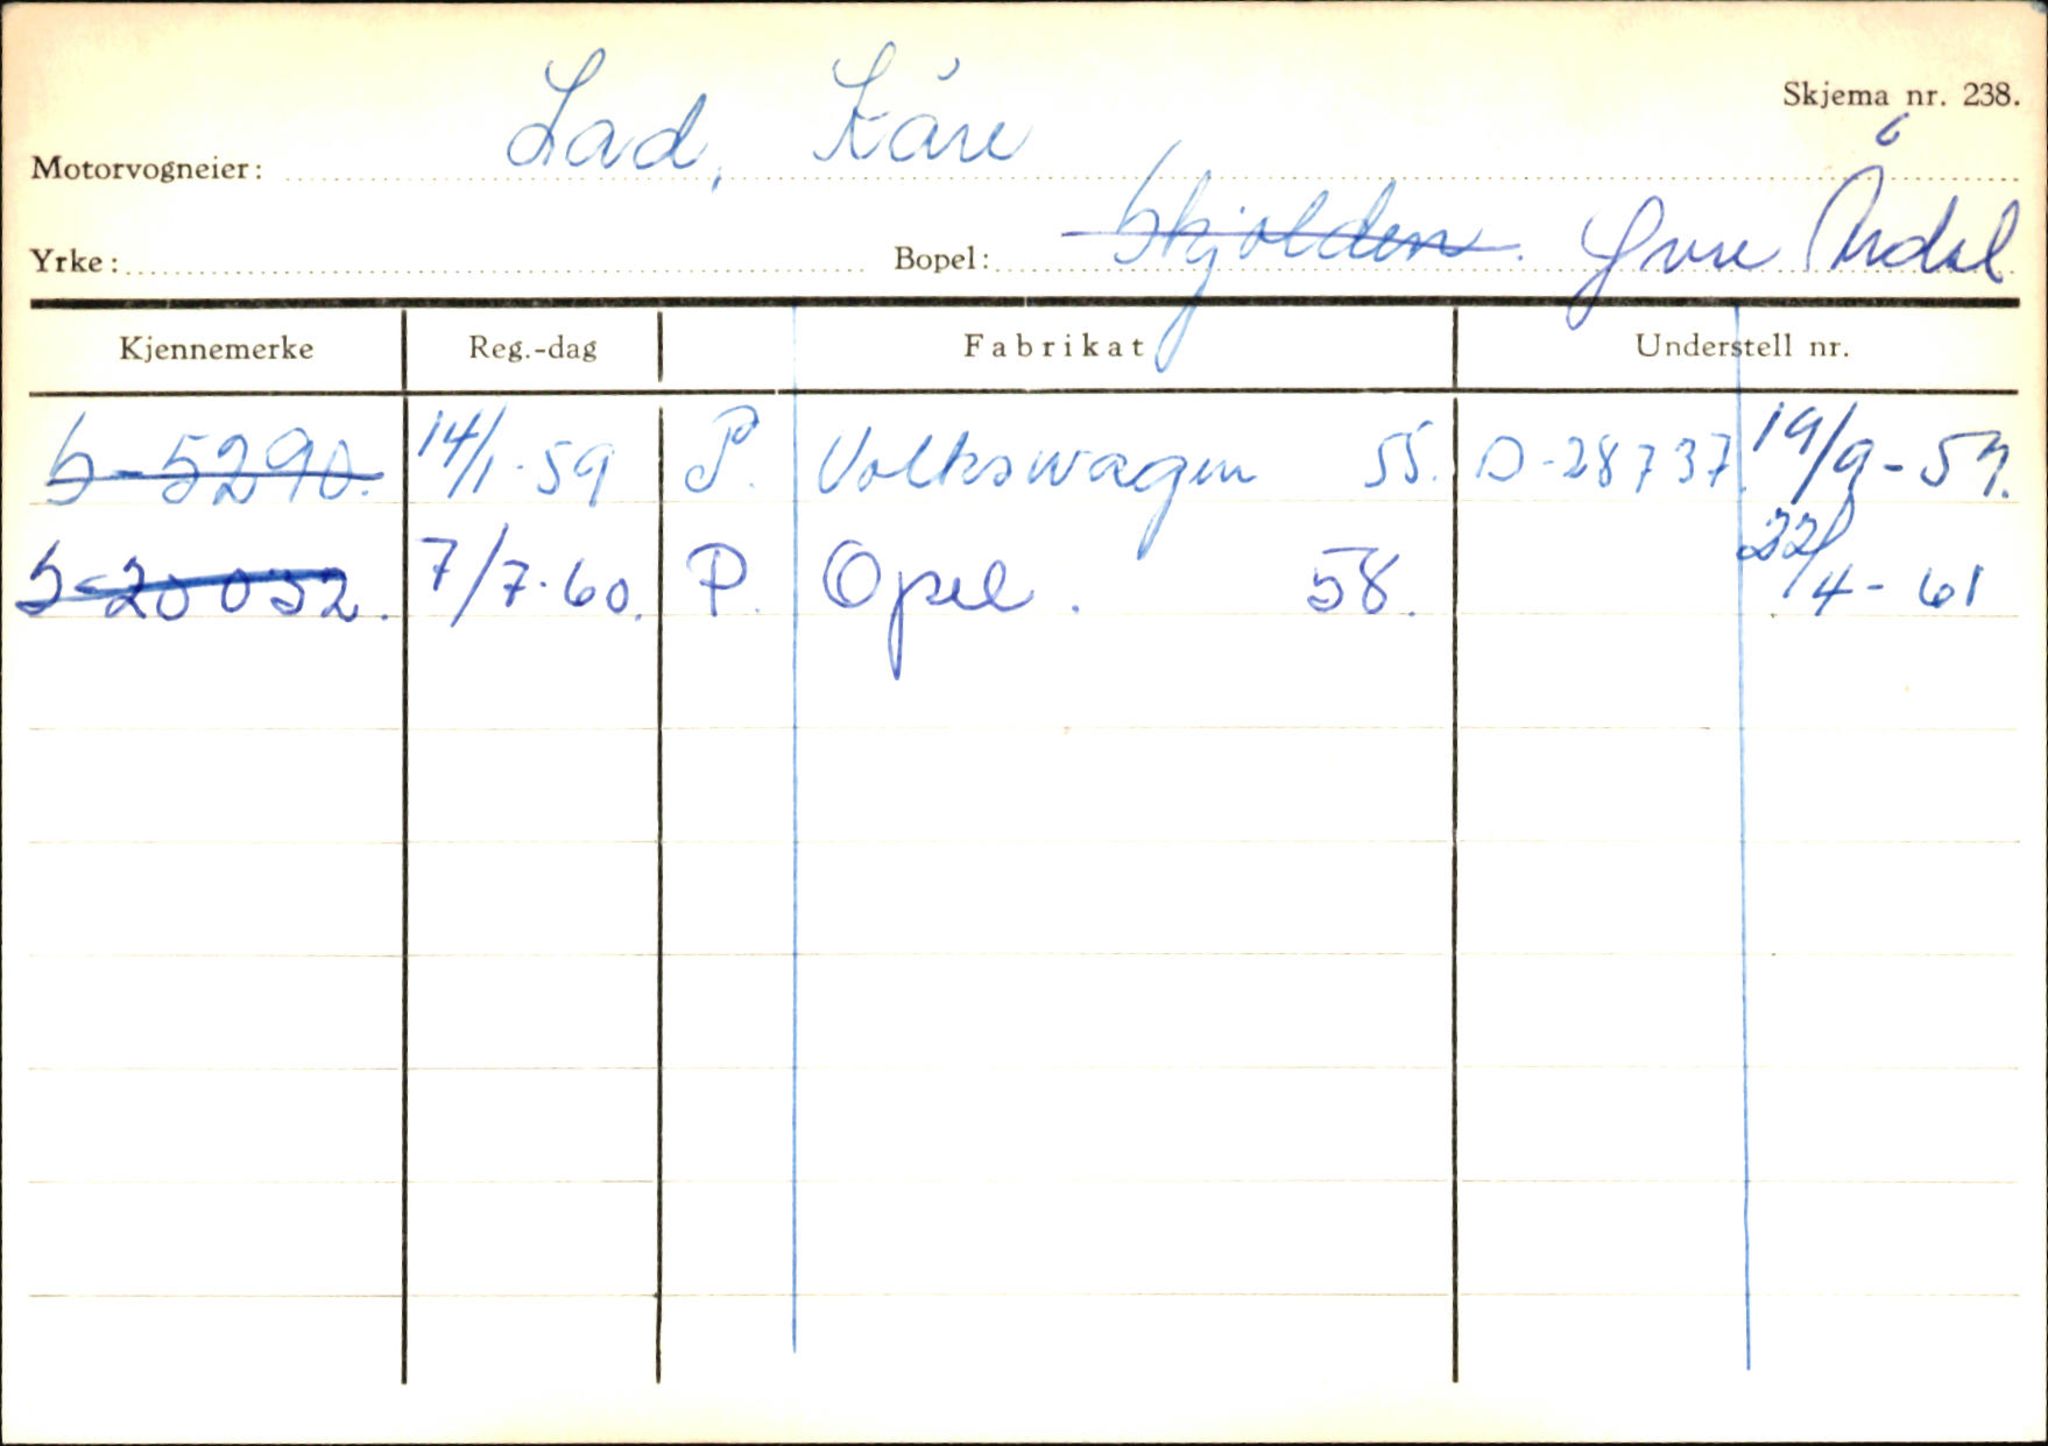 Skjema nr. 238.
Motorvogneier: Lad, Kåre
Yrke: Bopel: Skjolden. Øvre Årdal
Kjennemerke Reg.-dag Fabrikat Understell nr.
S-5290. 14/1-59 P. Volkswagen 55. D-28737. 19/9-59.
S-20052. 7/7-60. P. Opel. 58. 22/4-61